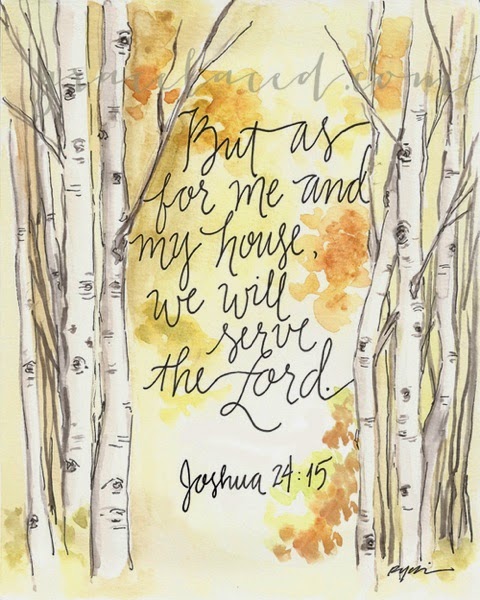 gracelaced.com
But as
for me and
my house,
we will
serve
the Lord.
Joshua 24:15